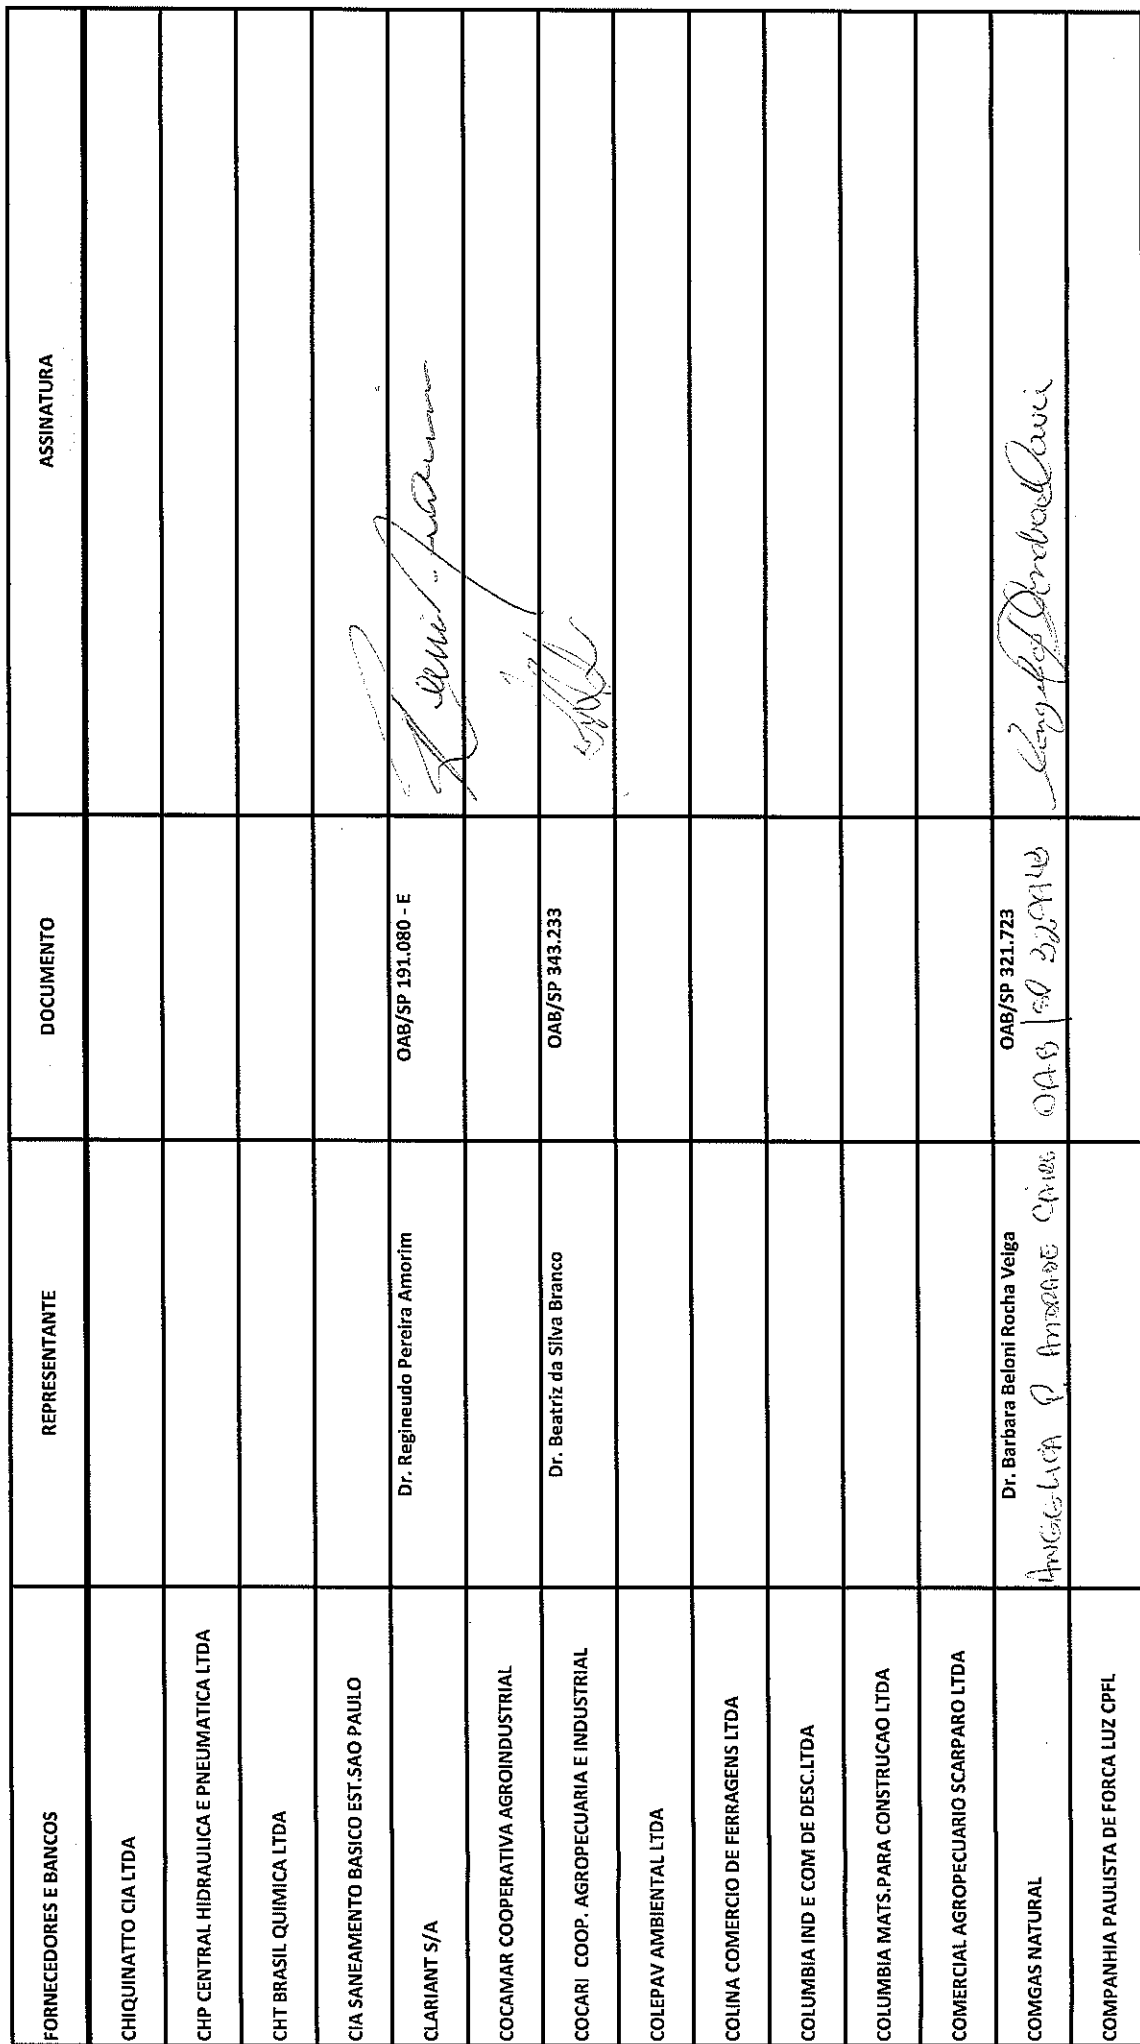 FORNECEDORES E BANCOS	REPRESENTANTE	DOCUMENTO	ASSINATURA
CHIQUINATTO CIA LTDA
CHP CENTRAL HIDRAULICA E PNEUMATICA LTDA
CHT BRASIL QUIMICA LTDA
CIA SANEAMENTO BASICO EST.SAO PAULO
CLARIANT S/A	Dr. Regineudo Pereira Amorim	OAB/SP 191.080 - E
COCAMAR COOPERATIVA AGROINDUSTRIAL
COCARI COOP. AGROPECUARIA E INDUSTRIAL	Dr. Beatriz da Silva Branco	OAB/SP 343.233
COLEPAV AMBIENTAL LTDA
COLINA COMERCIO DE FERRAGENS LTDA
COLUMBIA IND E COM DE DESC.LTDA
COLUMBIA MATS.PARA CONSTRUCAO LTDA
COMERCIAL AGROPECUARIO SCARPARO LTDA
COMGAS NATURAL	Dr. Barbara Beloni Rocha Veiga	OAB/SP 321.723
ANGELICA P ANDRADE	OAB/SP
COMPANHIA PAULISTA DE FORCA LUZ CPFL